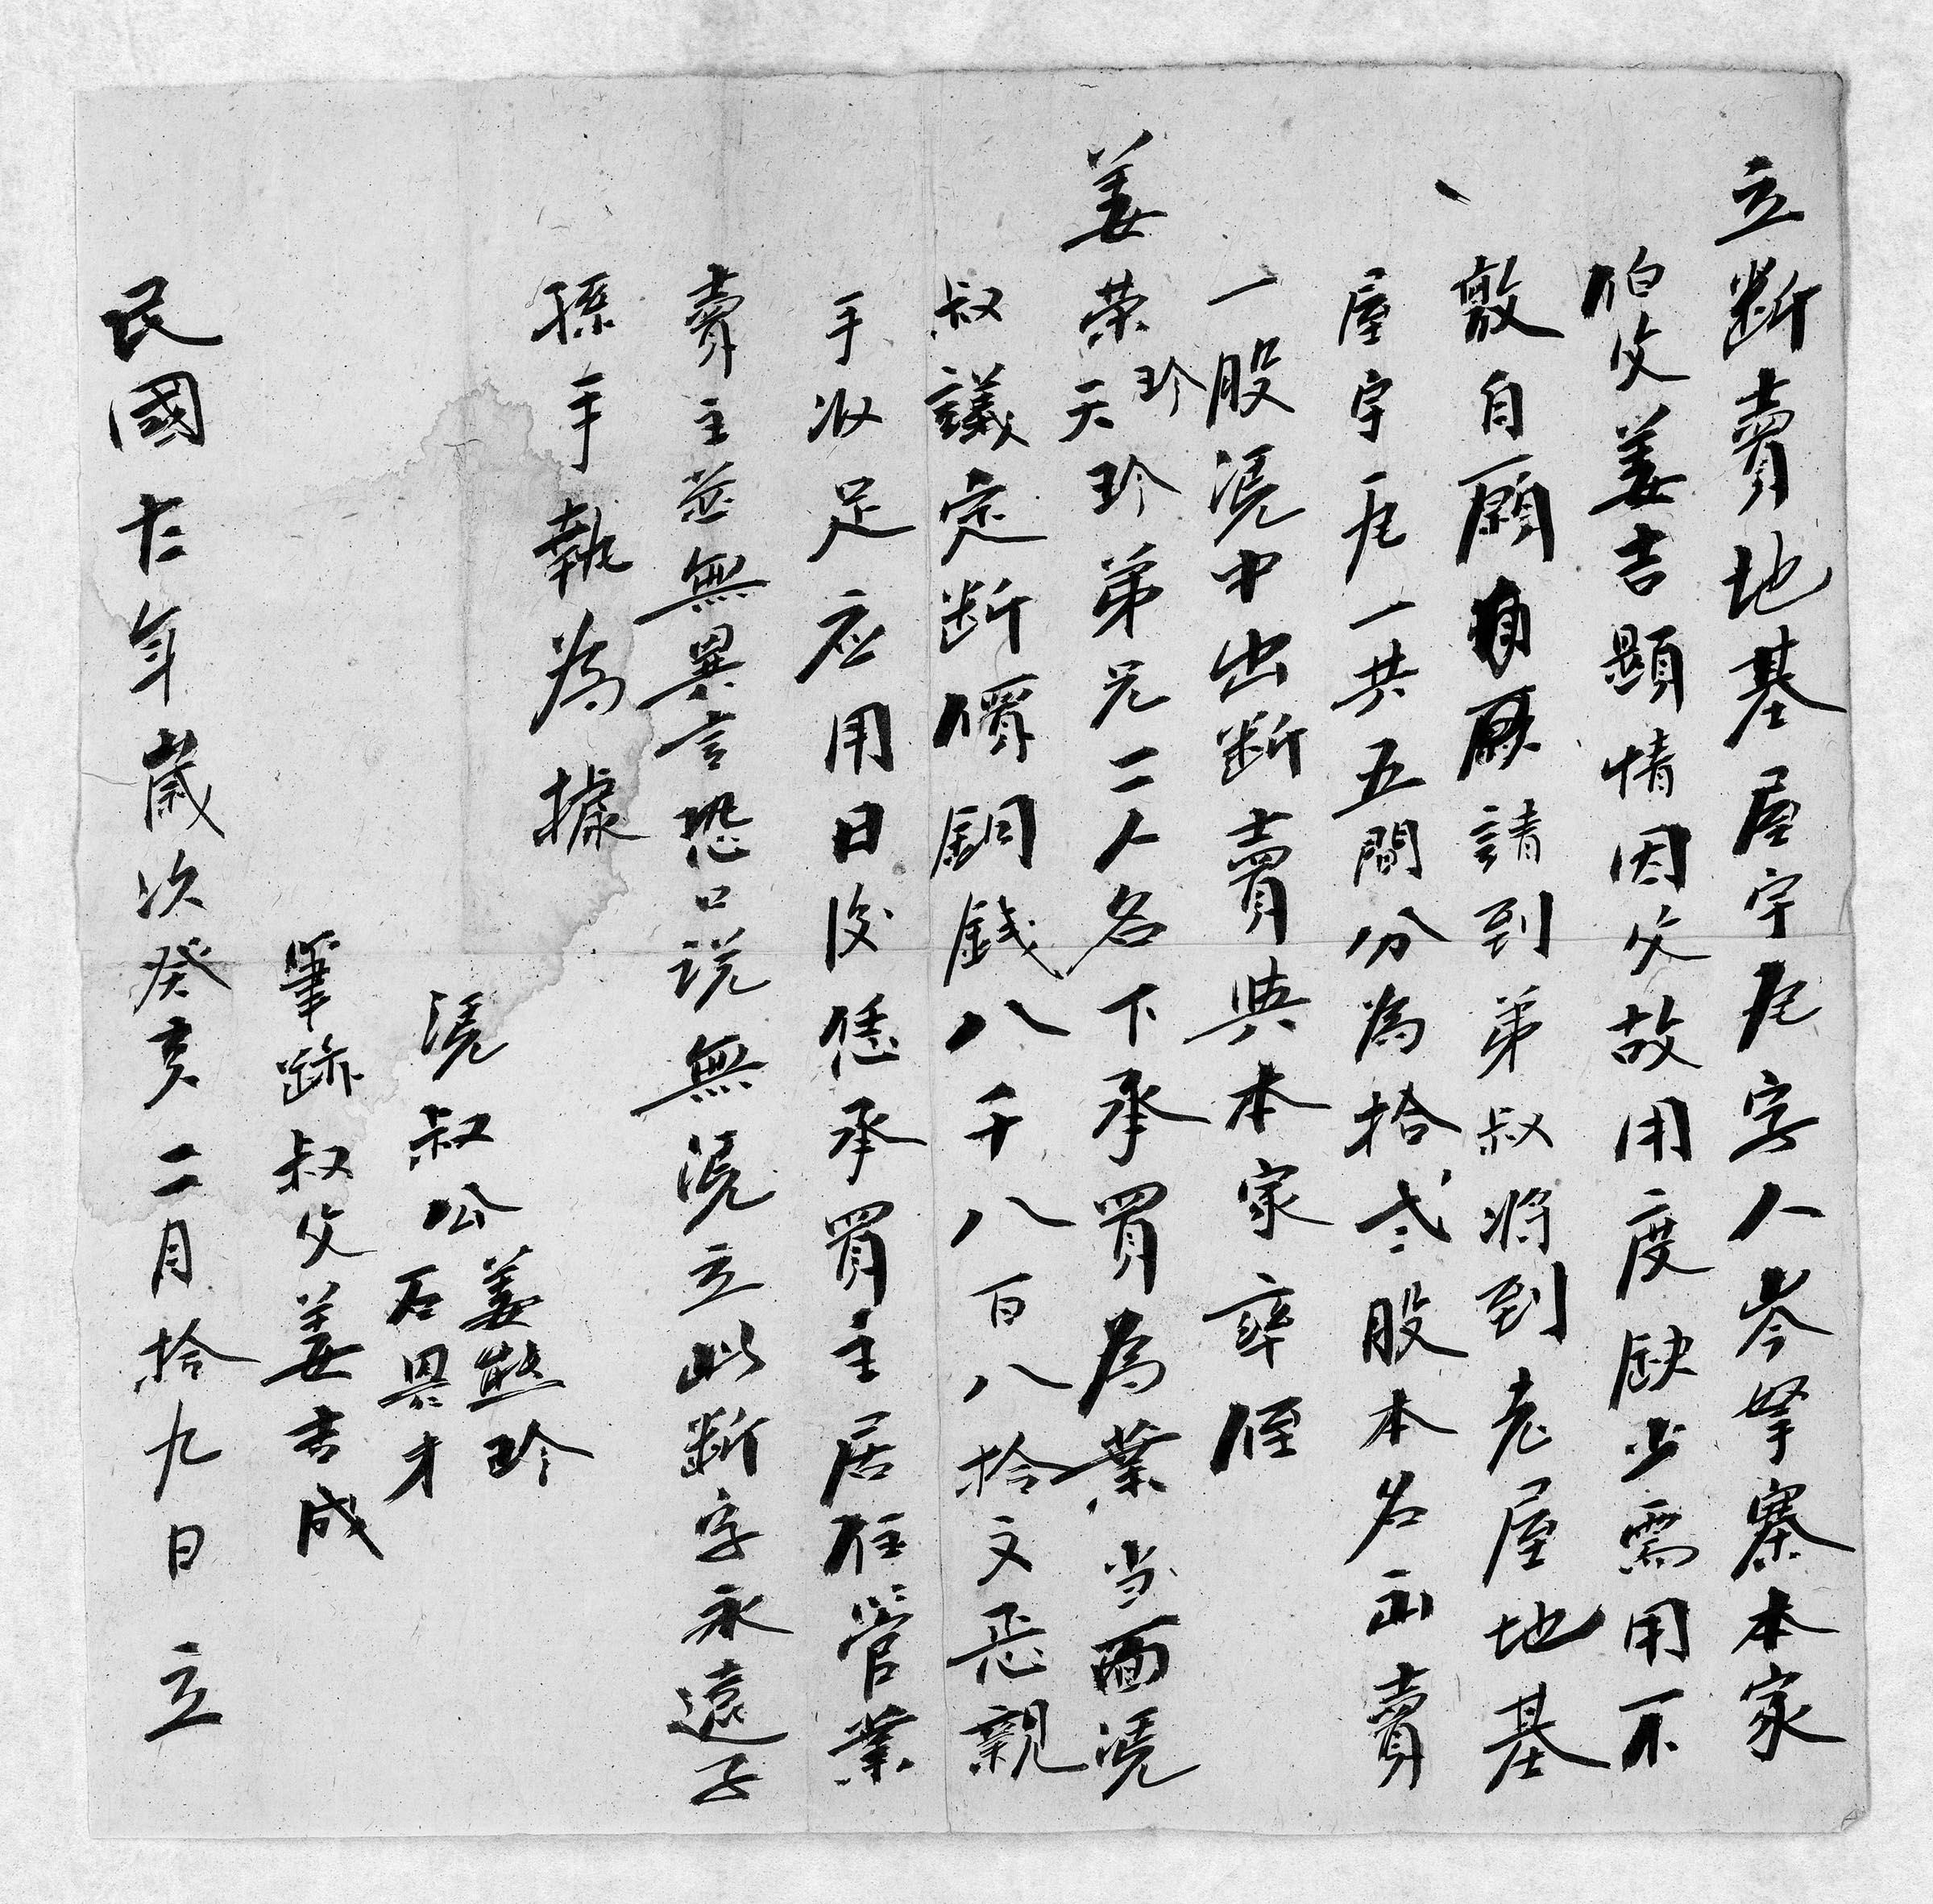 立断賣地基屋宇瓦字人岑拏寨本家
伯父姜吉顕情因父故用度缺少需用不
敷自願請到弟叔将到老屋地基
屋宇一瓦一共五間分為拾弍股本名出賣
一股凴中出断賣典本家侄
姜荣珍天珍弟兄二人名下承買為業当面凴
叔議定断價銅錢八千八百八拾文恁親
手収足应用日後恁承買主居住管業
賣主並無異言恐口説無凴立此断字永遠子
孫手執為據
凴叔公姜熙珍
石界才
筆跡叔父姜吉成
民國十二年歲次癸亥二月拾九日立